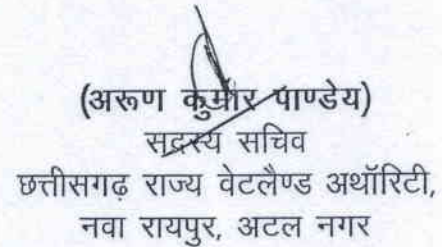 (अरूण कुमार पाण्डेय)
सदस्य सचिव
छत्तीसगढ़ राज्य वेटलैण्ड अथॉरिटी,
नवा रायपुर, अटल नगर